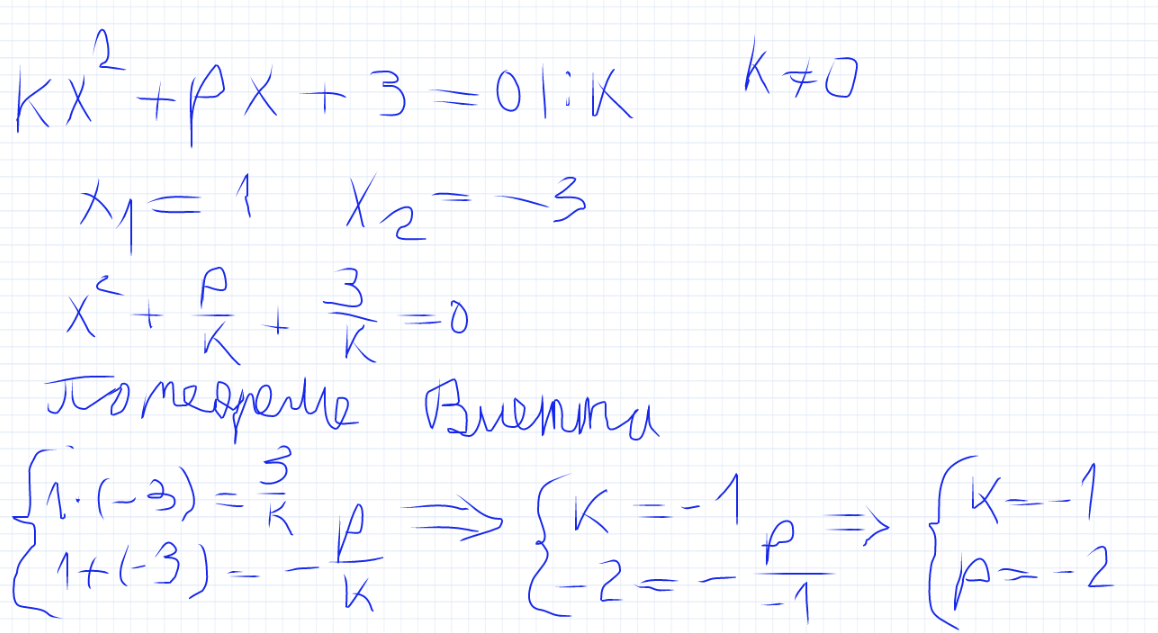 kx² + px + 3 = 0 |:k k ≠ 0
x₁ = 1 x₂ = -3
x² + p/k + 3/k = 0
По теореме Виетта
{ 1·(-3) = 3/k ⟹ { k = -1 ⟹ { k = -1
{ 1+(-3) = -p/k { -2 = -p/-1 { p = -2